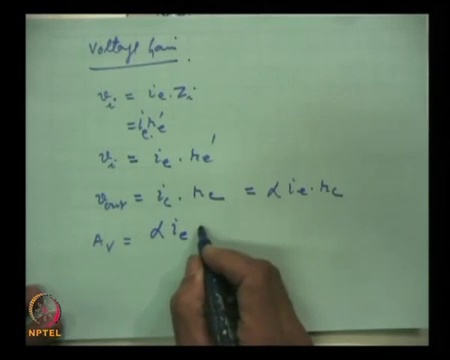 Voltage Gain.
v_i = i_e . Z_i
= i_e . r_e'
v_i = i_e . r_e'
v_out = i_c . r_c = α i_e . r_c
A_v = α i_e
NPTEL